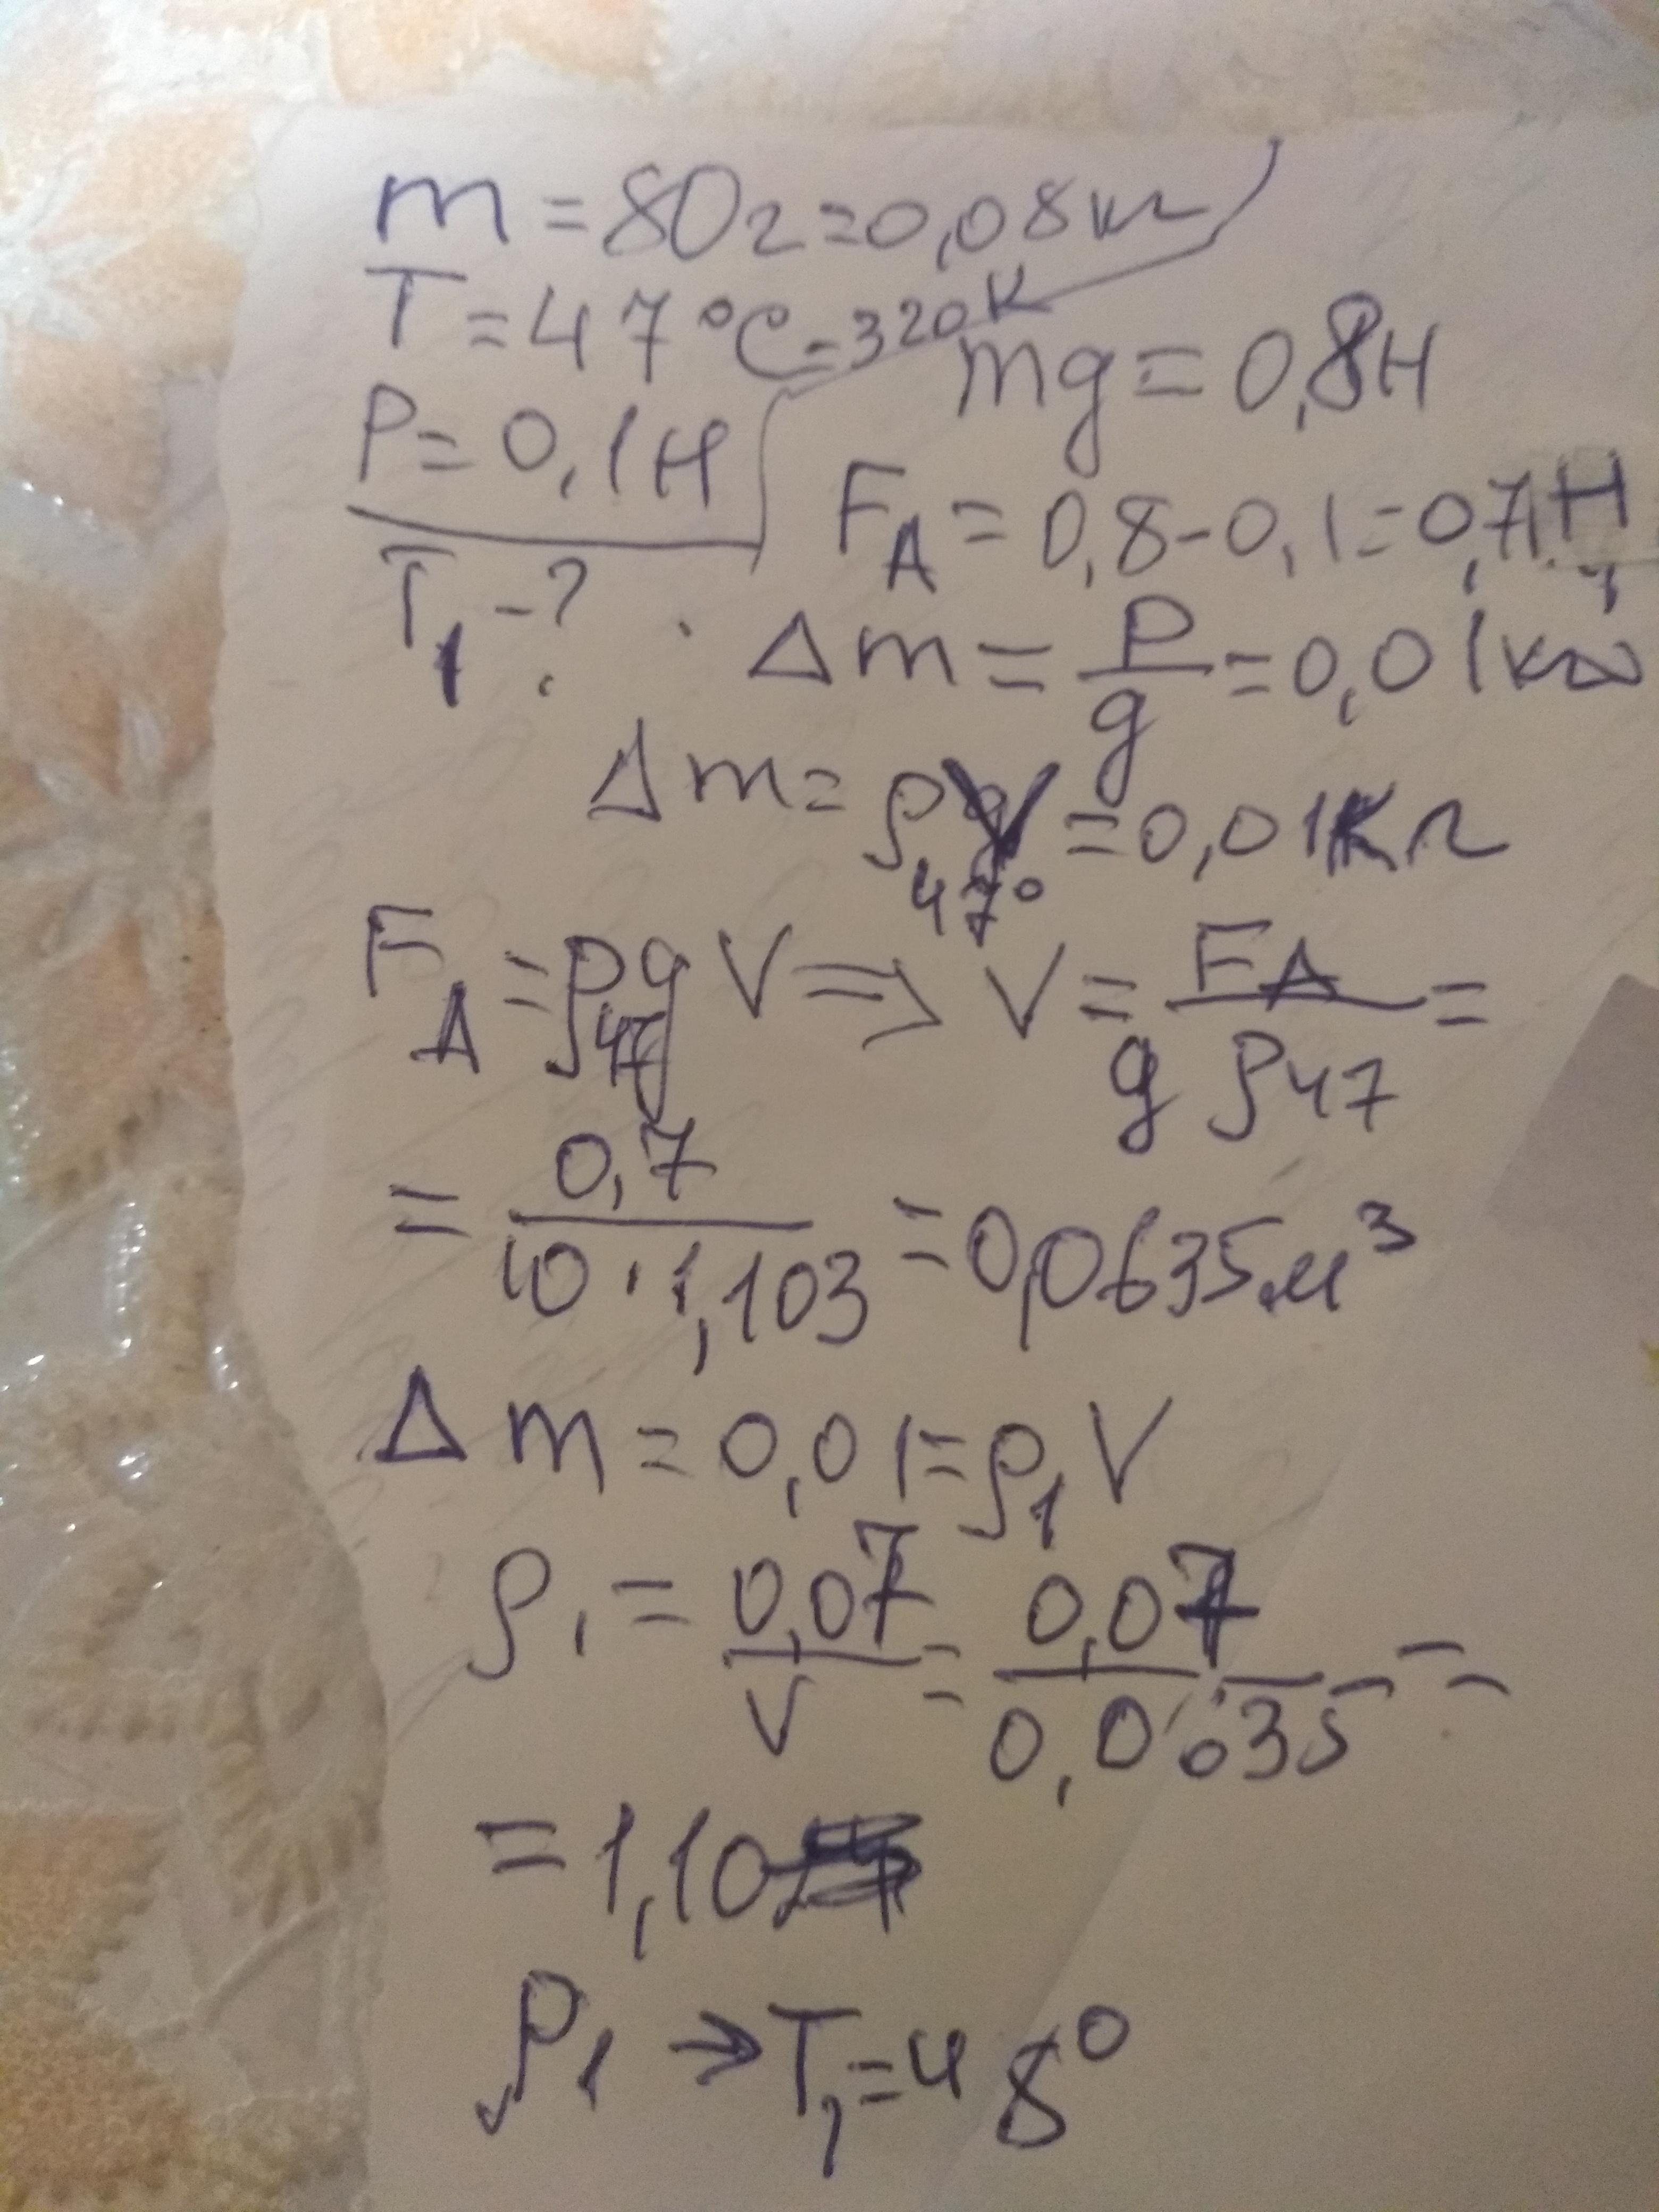 m = 80г = 0,08кг
T = 47°C = 320K
P = 0,1Н
T₁ - ?
mg = 0,8Н
F_A = 0,8 - 0,1 = 0,7Н
Δm = P/g = 0,01кг
Δm = ρ₄₇° V = 0,01кг
F_A = ρ₄₇ g V ⇒ V = F_A / g ρ₄₇ =
= 0,7 / 10 · 1,103 = 0,0635м³
Δm = 0,01 = ρ₁ V
ρ₁ = 0,07 / V = 0,07 / 0,0635 =
= 1,10
ρ₁ → T₁ = 48°